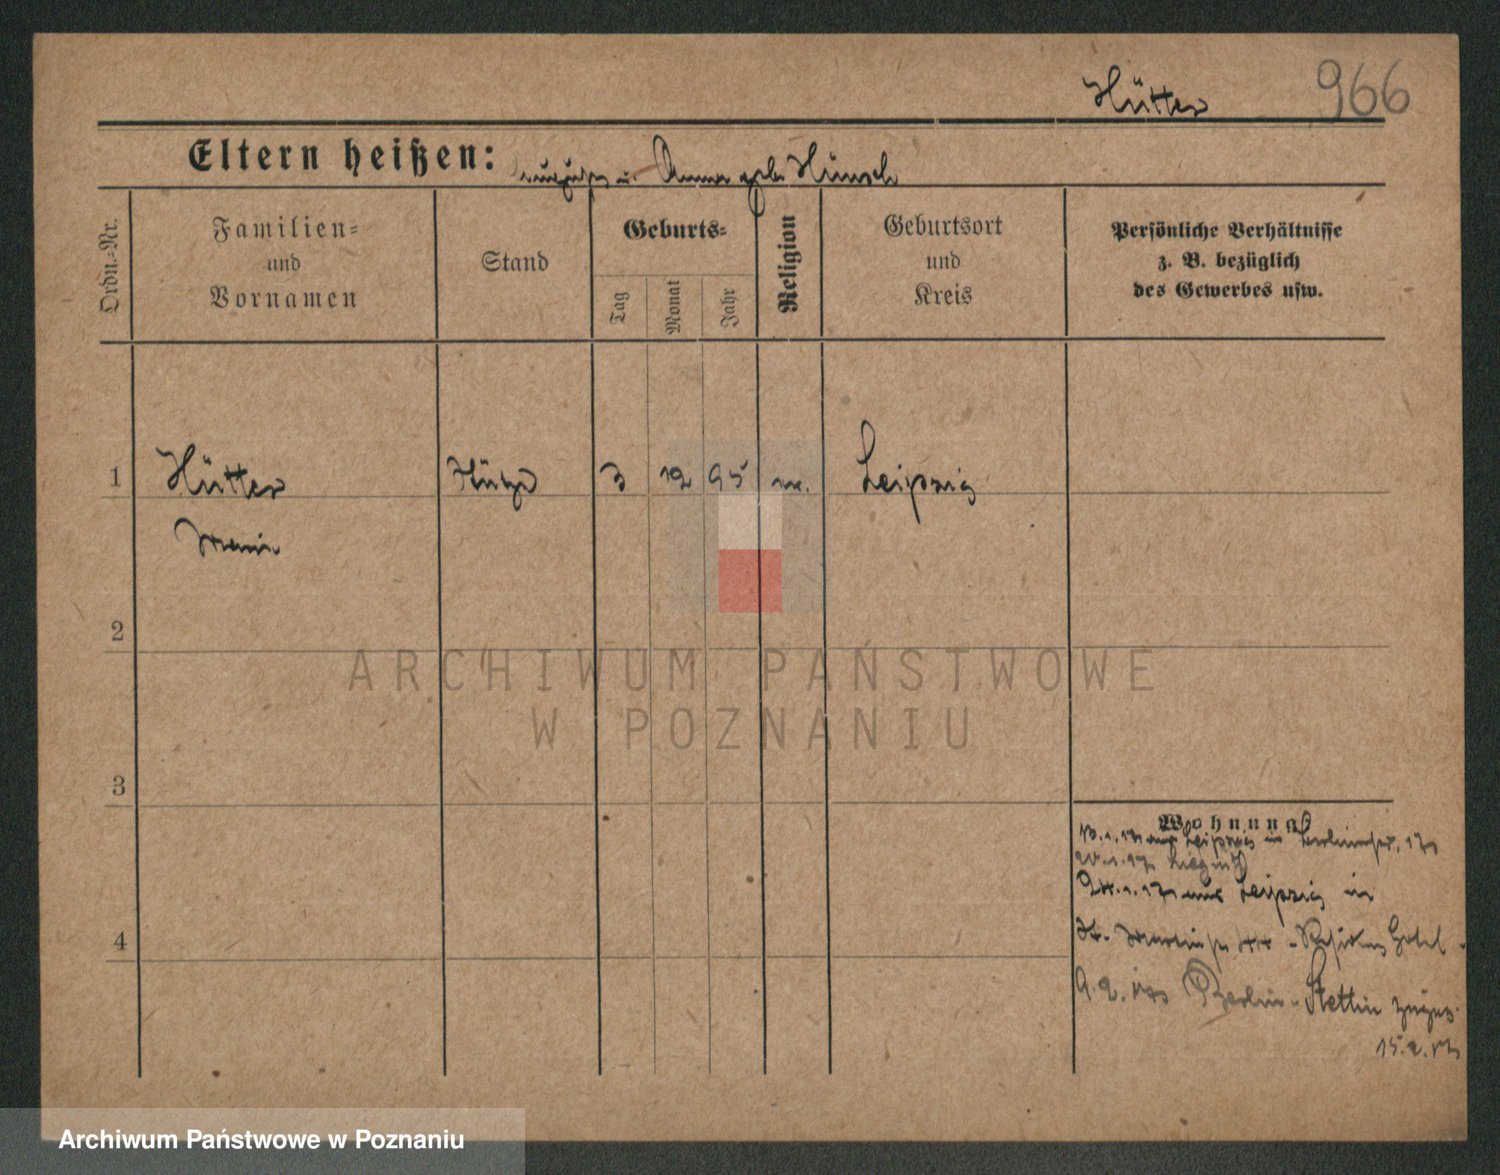 Hütter 966
Eltern heißen: u. Anna geb. Hünsch
Ordn.-Nr.
Familien-
und
Vornamen
Stand
Geburts-
Tag
Monat
Jahr
Religion
Geburtsort
und
Kreis
Persönliche Verhältnisse
z. B. bezüglich
des Gewerbes usw.
1 Hütter 3 12 95 Leipzig
2
3
4
Wohnung
aus Leipzig in
Liegnitz
24.1.17 aus Leipzig in
St. Martinstr. Hotel
9.2.17 Berlin-Stettin
15.2.17
ARCHIWUM PAŃSTWOWE
W POZNANIU
Archiwum Państwowe w Poznaniu